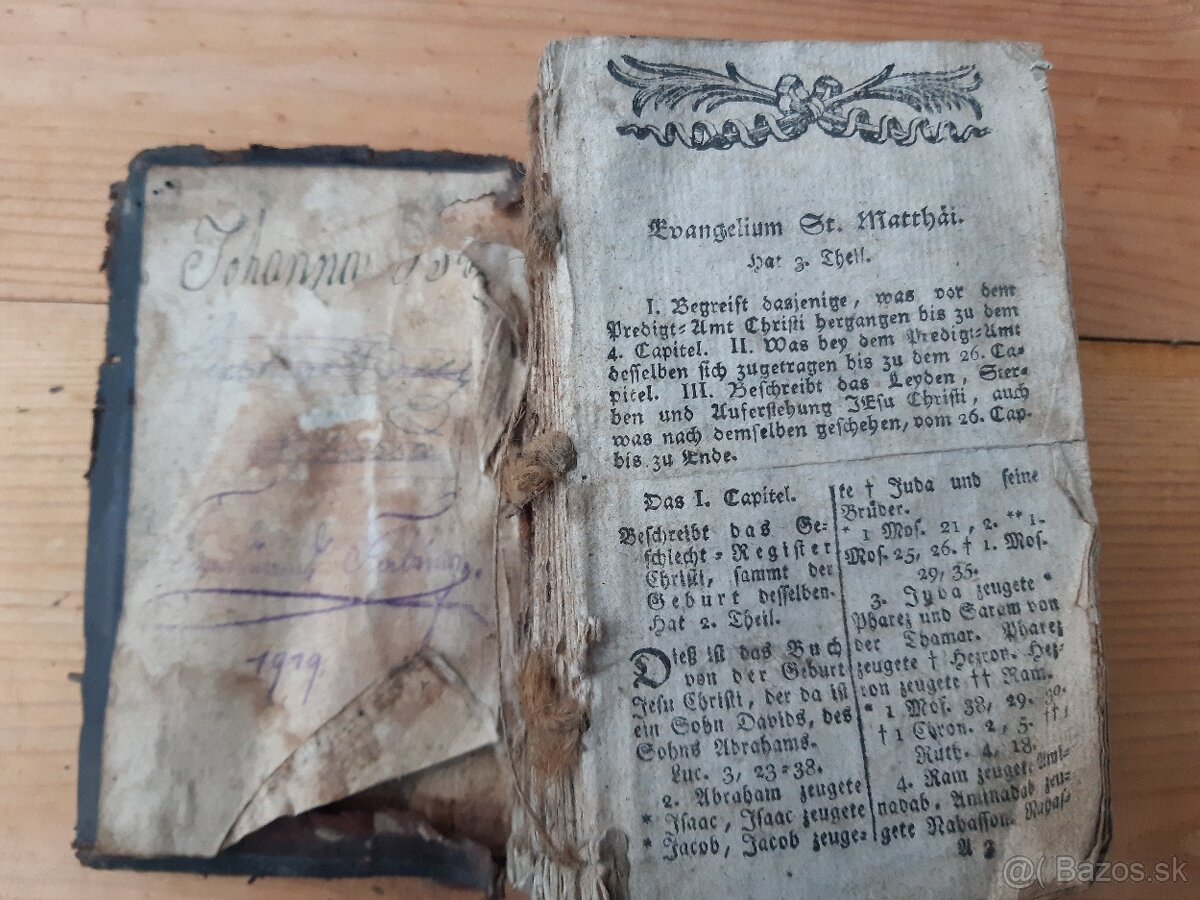 Johanna
1919
Evangelium St. Matthäi.
Hat 3. Theil.
I. Begreift dasjenige, was vor dem
Predigt-Amt Christi hergangen bis zu dem
4. Capitel. II. Was bey dem Predigt-Amt
desselben sich zugetragen bis zu dem 26. Ca-
pitel. III. Beschreibt das Leyden, Ster-
ben und Auferstehung JEsu Christi, auch
was nach demselben geschehen, vom 26. Cap.
bis zu Ende.
Das I. Capitel.
Beschreibt das Ge-
schlecht-Register
Christi, sammt der
Geburt desselben.
Hat 2. Theil.
Dieß ist das Buch
von der Geburt
Jesu Christi, der da ist
ein Sohn Davids, des
Sohns Abrahams.
Luc. 3, 23-38.
2. Abraham zeugete
* Isaac, Isaac zeugete
* Jacob, Jacob zeuge-
te † Juda und seine
Brüder.
* 1 Mos. 21, 2. ** 1.
Mos. 25, 26. † 1. Mos.
29, 35.
3. Juda zeugete *
Pharez und Saram von
der Thamar. Pharez
zeugete † Hezron. Hez-
ron zeugete †† Ram.
* 1 Mos. 38, 29. 30.
† 1 Chron. 2, 5. †† 
Ruth. 4, 18.
4. Ram zeugete Ami-
nadab. Aminadab zeu-
gete Nahasson. Nahas-
A 3
@( Bazos.sk